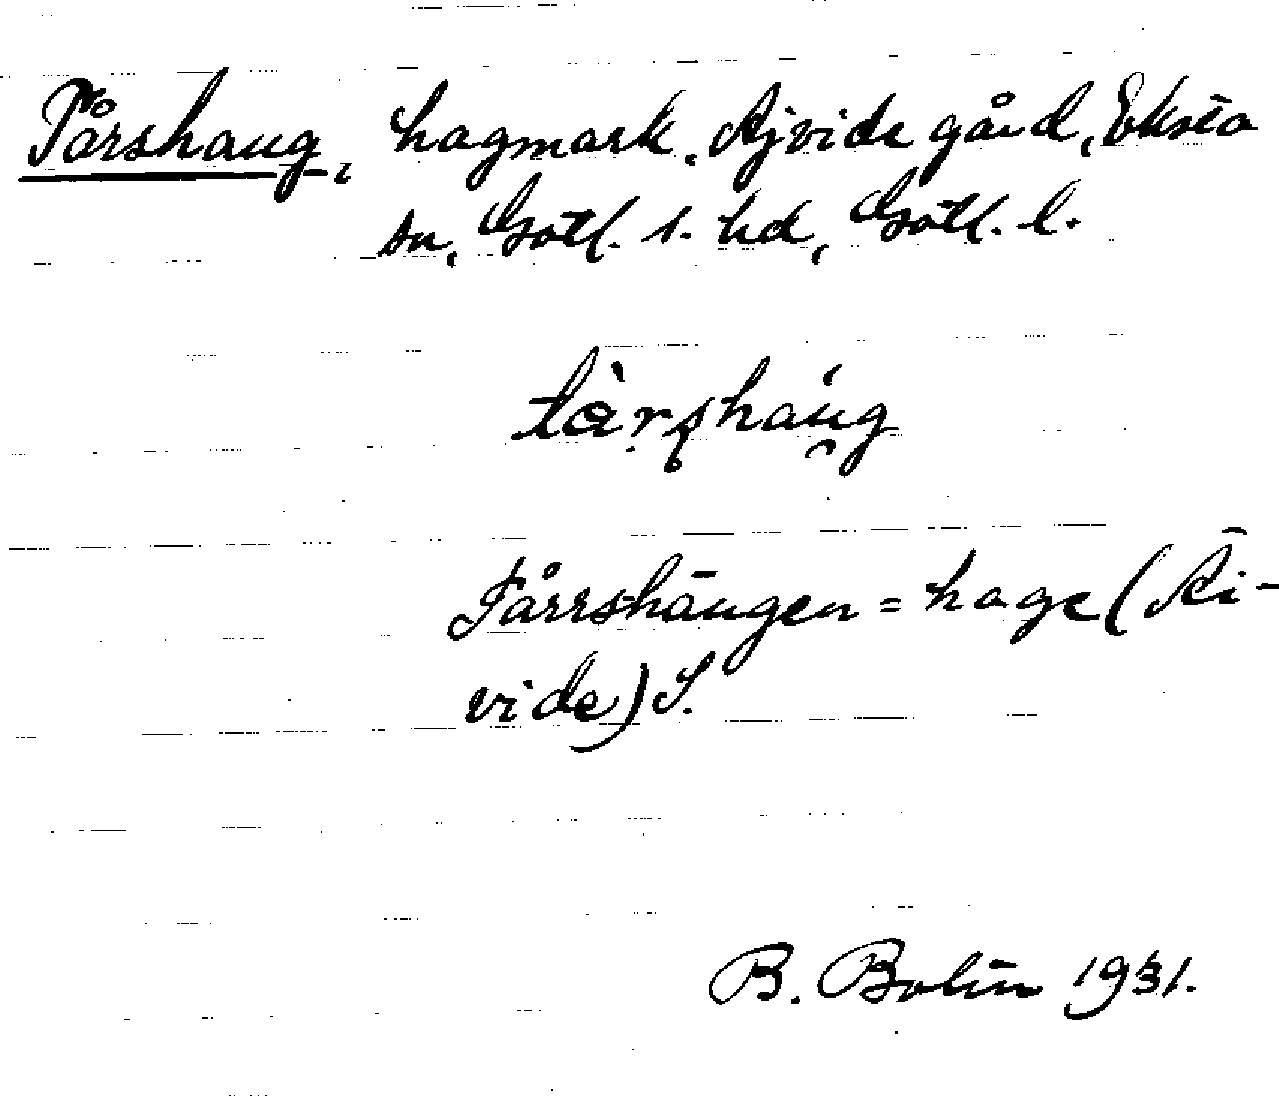 Tårshaug, hagmark, Ajvide gård, Eksta
sn, Gotl. s. hd, Gotl. l.
tàrshaug
Tårrshaugen = hage (Ai-
vide) S.
B. Bolin 1931.